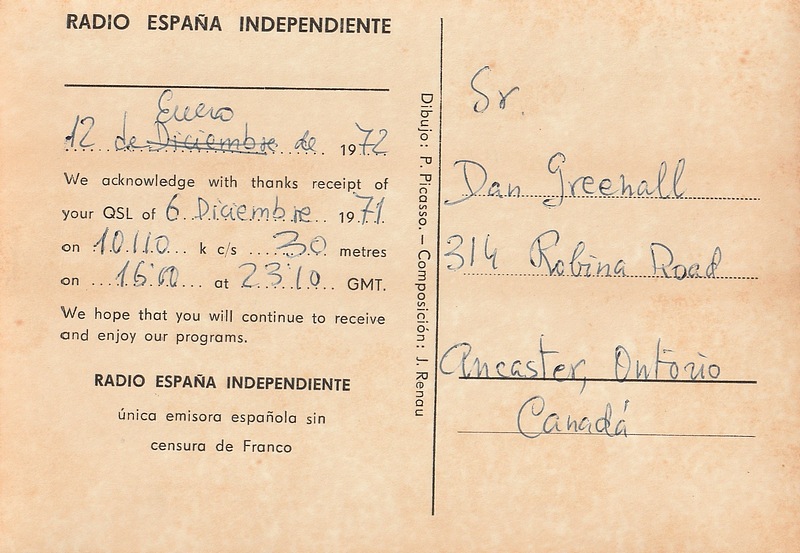 RADIO ESPAÑA INDEPENDIENTE
Enero
12 de Diciembre de 1972
We acknowledge with thanks receipt of
your QSL of 6 Diciembre 1971
on 10.110 k c/s 30 metres
on at 23 10 GMT.
We hope that you will continue to receive
and enjoy our programs.
RADIO ESPAÑA INDEPENDIENTE
única emisora española sin
censura de Franco
Dibujo: P. Picasso. – Composición: J. Renau
Sr.
Dan Greenall
314 Robina Road
Ancaster, Ontorio
Canadá